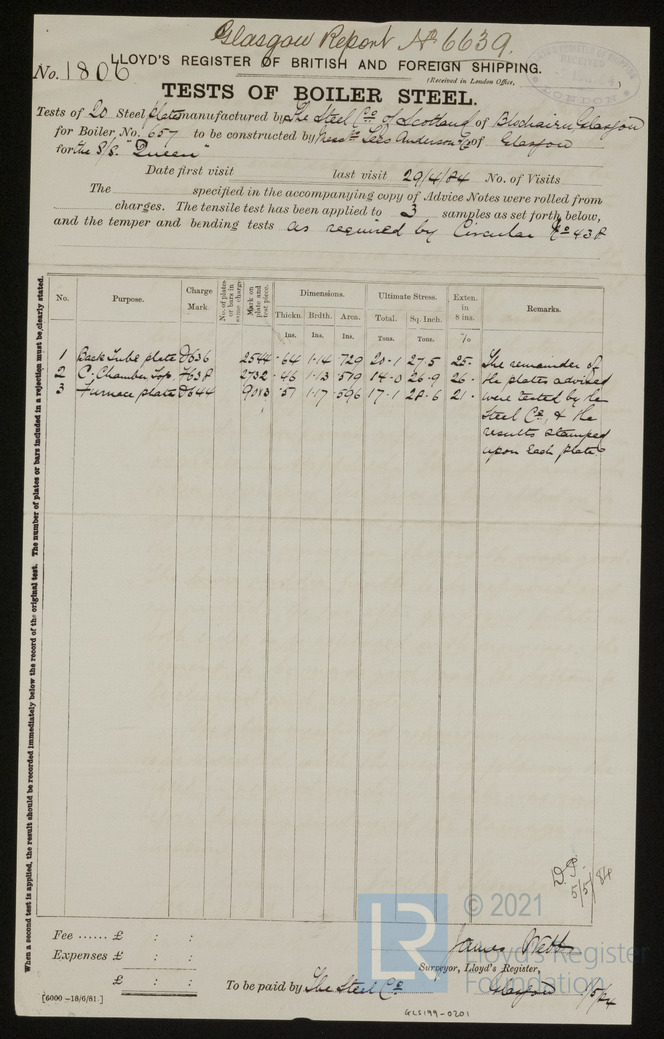 Glasgow Report No 6639.
No. 1806
LLOYD'S REGISTER OF BRITISH AND FOREIGN SHIPPING.
(Received in London Office, )
RECEIVED
LONDON
TESTS OF BOILER STEEL.
Tests of 20 Steel plates manufactured by The Steel Co of Scotland of Blochairn Glasgow
for Boiler, No. 657 to be constructed by Mess Lees Anderson & Co of Glasgow
for the S/S. "Queen"
Date first visit last visit 29/4/84 No. of Visits
The specified in the accompanying copy of Advice Notes were rolled from
charges. The tensile test has been applied to 3 samples as set forth below,
and the temper and bending tests as required by Circular No 438
When a second test is applied, the result should be recorded immediately below the record of the original test. The number of plates or bars included in a rejection must be clearly stated.
No. Purpose. Charge Mark. No. of plates or bars in same charge Mark on plate and test piece. Dimensions. Ultimate Stress. Exten. in 8 ins. Remarks.
Thickn. Brdth. Area. Total. Sq. Inch.
Ins. Ins. Ins. Tons. Tons. %
1 Back Tube plate 7636 2544 .64 1.14 .729 20.1 27.5 25. The remainder of
2 C. Chamber Top. 7638 2732 .46 1.13 .519 14.0 26.9 26. the plates advised
3 Furnace plate 7644 9083 .51 1.17 .596 17.1 28.6 21. were tested by the
Steel Co, & the
results stamped
upon each plate
D.P.
5/5/84
© 2021
LR Lloyd's Register
Foundation
Fee ...... £ : :
Expenses £ : :
£ : :
James
Surveyor, Lloyd's Register,
To be paid by The Steel Co Glasgow 1/5/84
[6000-18/6/81.]
GLS199-0201